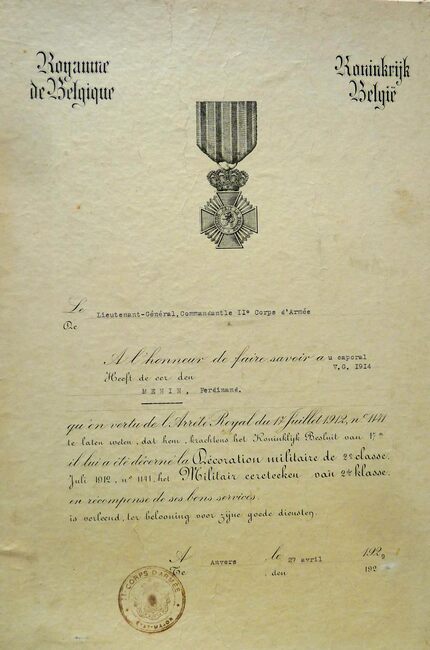 Royaume
de Belgique
Koninkrijk
België
Le Lieutenant-Général, Commandantle IIe Corps d'Armée
De
A l'honneur de faire savoir au caporal
V.G. 1914
Heeft de eer den
MENIN, Ferdinand.
qu'en vertu de l'Arrêté Royal du 17 Juillet 1912, n° 1141
te laten weten, dat hem, krachtens het Koninklijk Besluit van 17n
il lui a été décerné la Décoration militaire de 2e classe.
Juli 1912, n° 1141, het Militair eereteeken van 2de klasse.
en récompense de ses bons services.
is verleend, ter belooning voor zijne goede diensten.
A Anvers le 27 avril 1929
Te den 192
IIe CORPS D'ARMÉE
ETAT-MAJOR